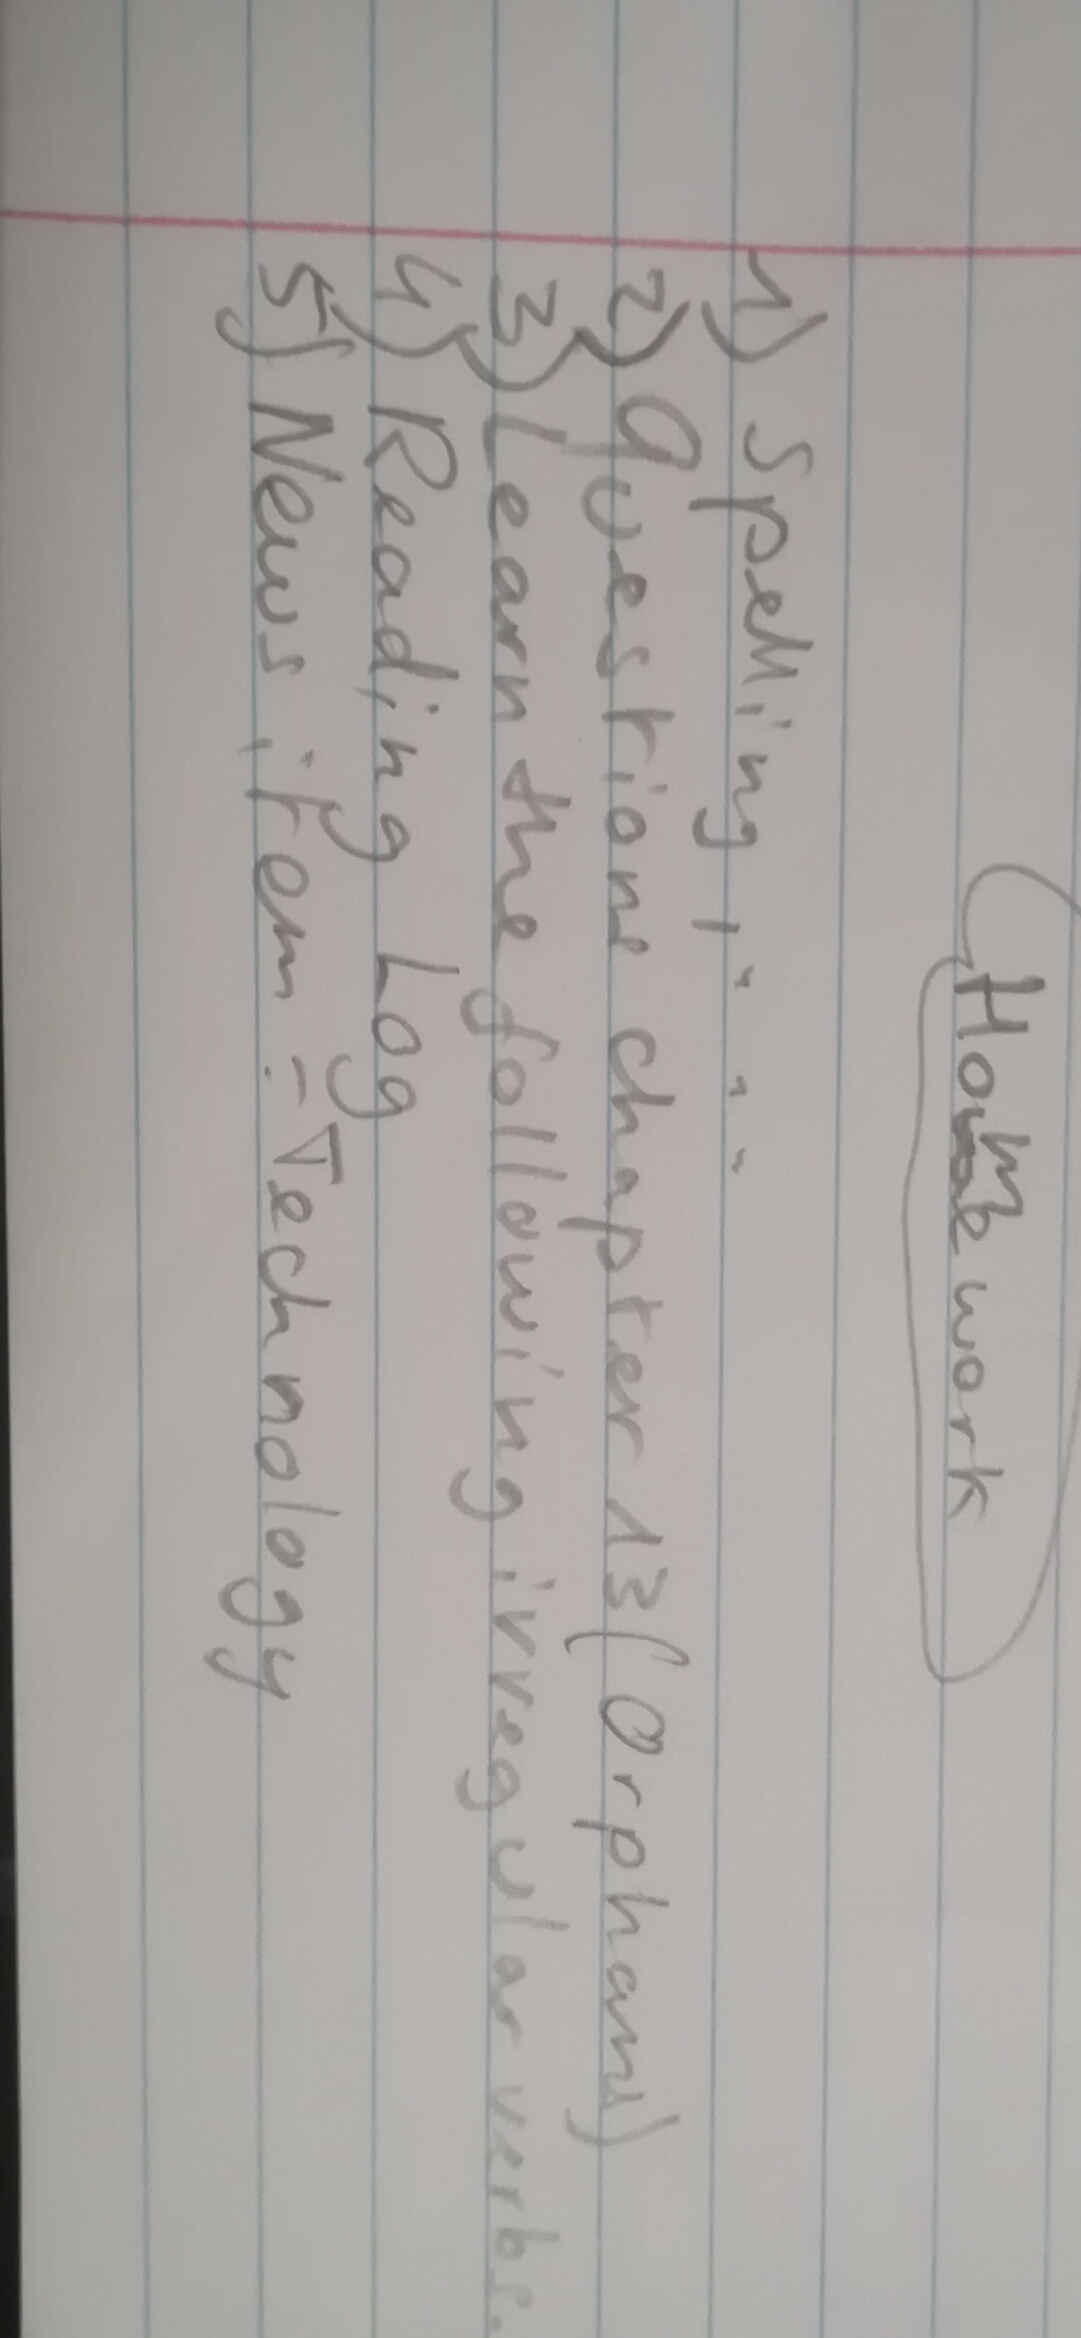 Homework
1) Spelling, " " "
2) Questions chapter 13 (Orphans)
3) Learn the following irregular verbs.
4) Reading Log
5) News item - Technology